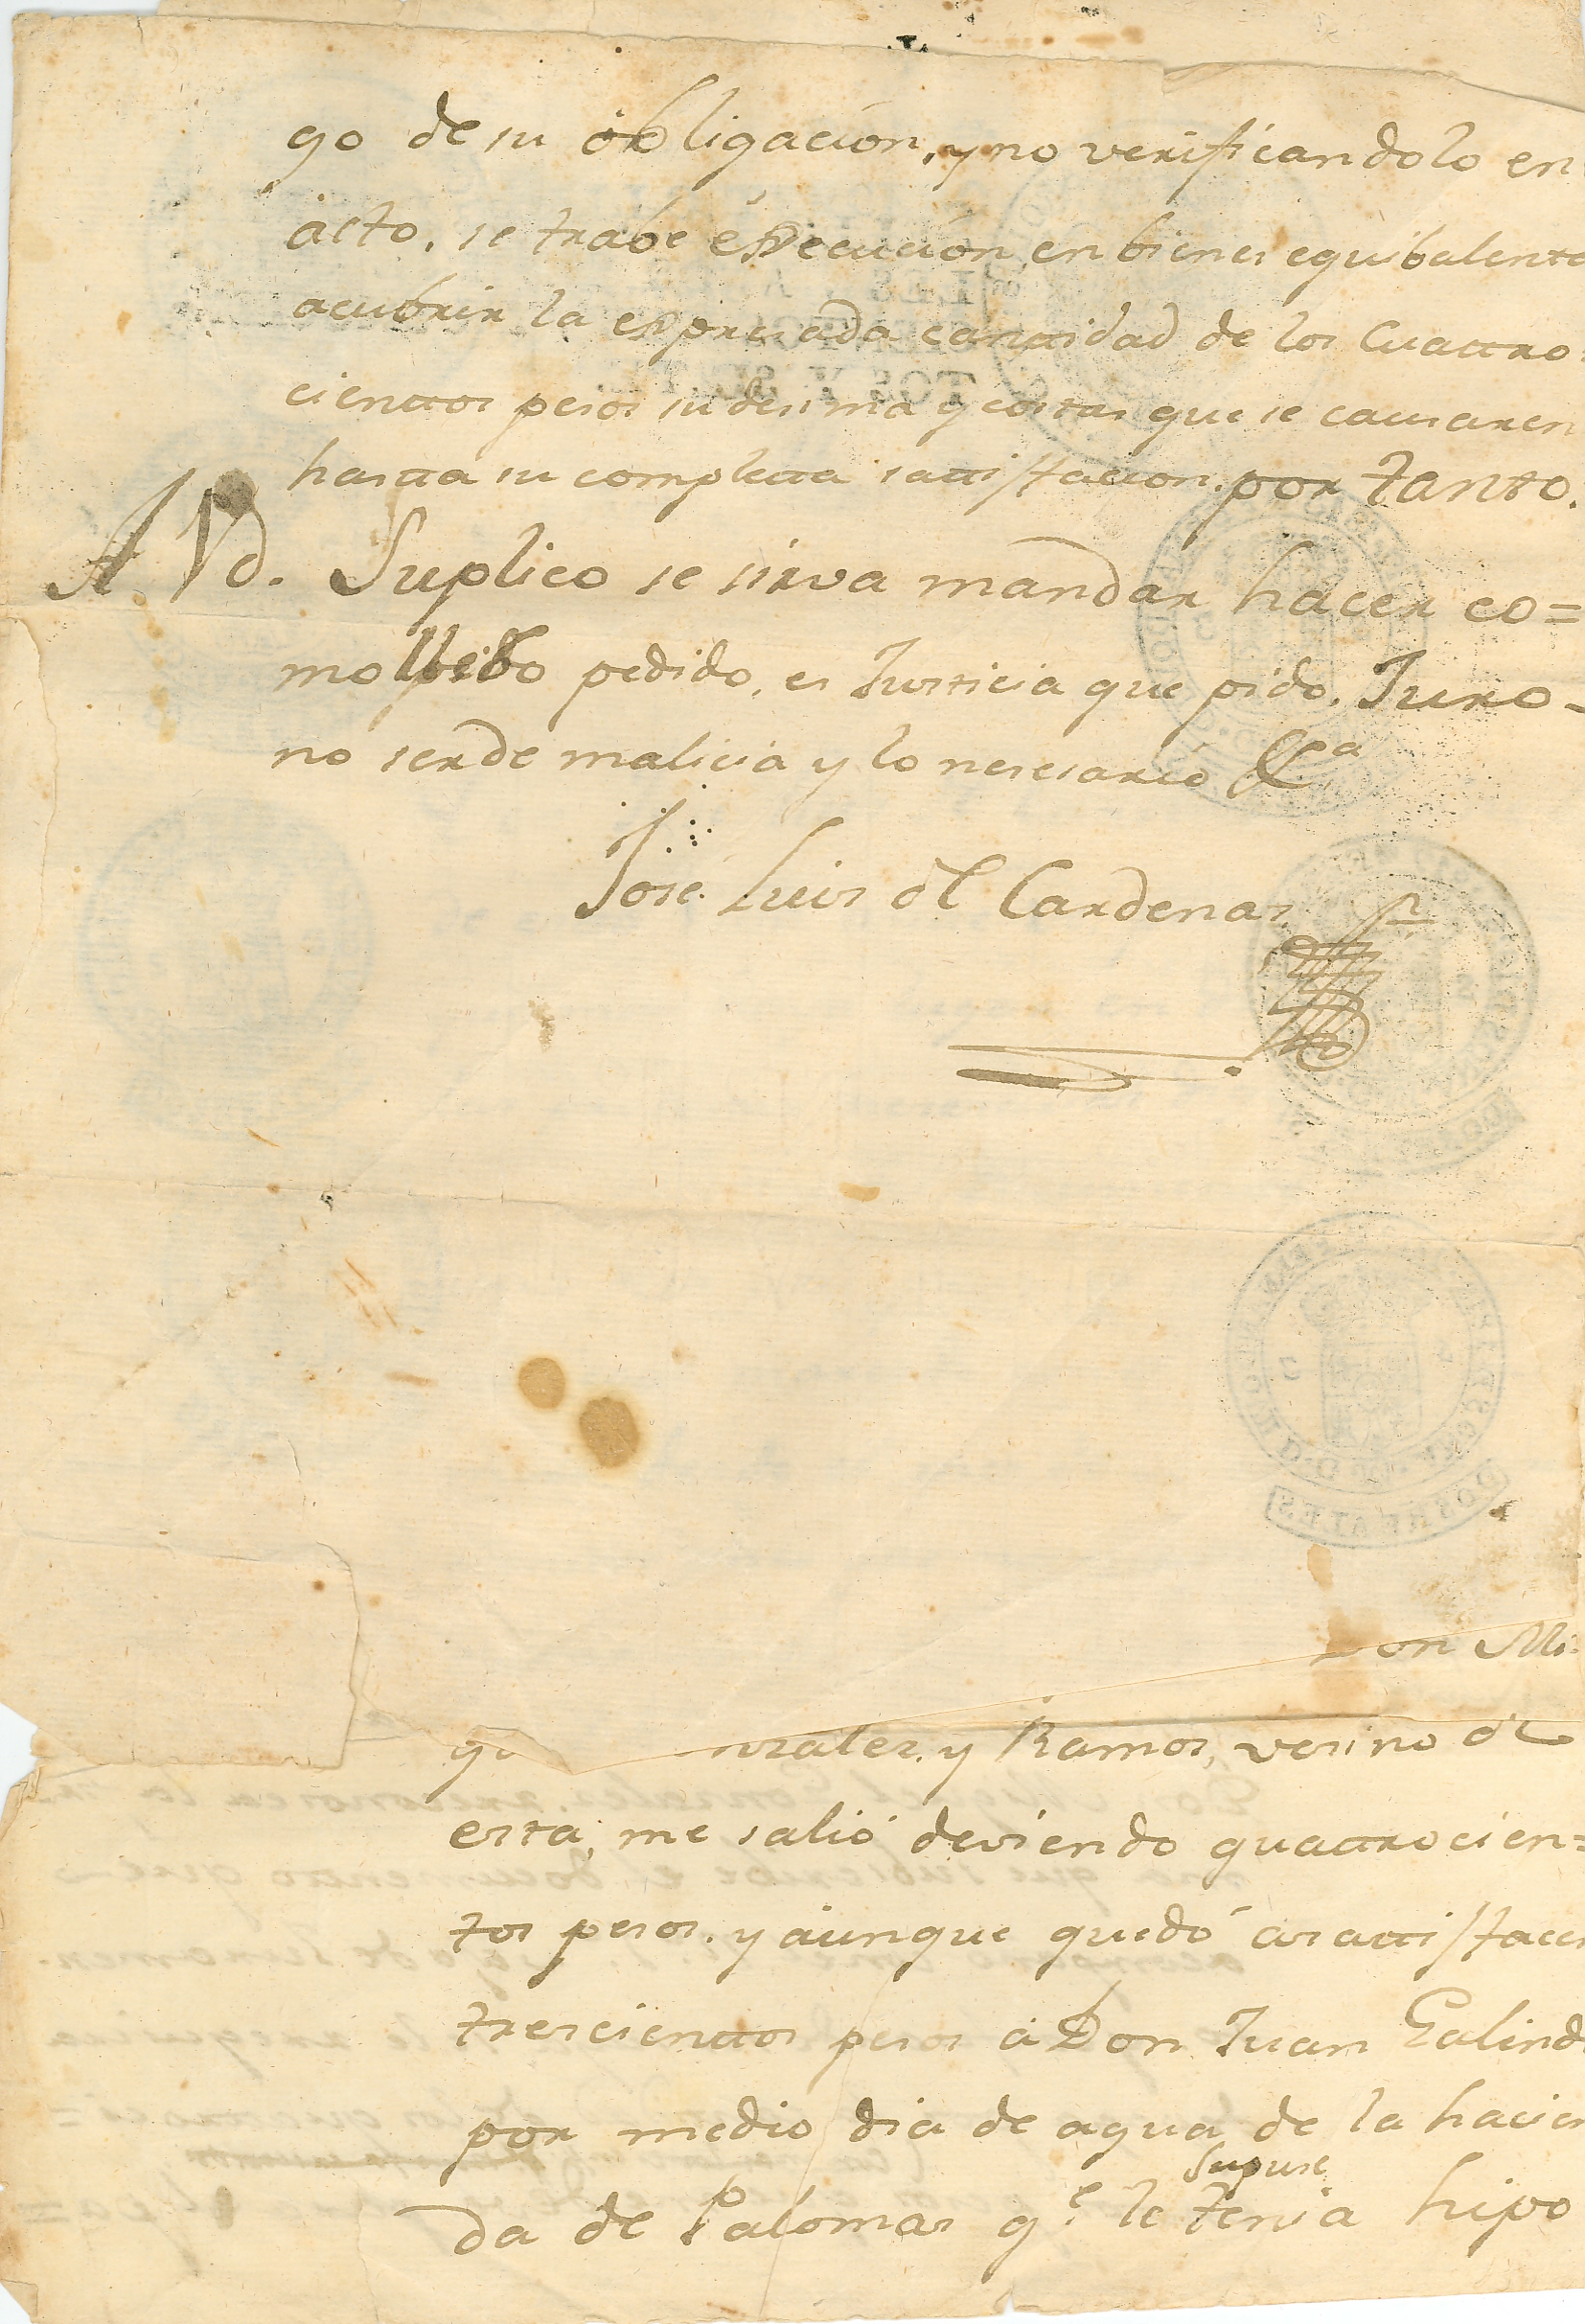 go de su obligacion, y no verificandolo en
acto, se trabe execucion en bienes equibalente
acubrir la expresada canttidad de los Cuattro
cienttos pesos su desima y costas que se causaren
hastta su completta sattisfacion. por tanto.
A Vd. Suplico se sirva mandar hacer co=
mo llebo pedido, es Justicia que pido. Juro
no ser de malicia y lo nesesario &a
José Luis de Cardenas
Don Mi
gu nzales, y Ramos, vesino de
esta, me salió deviendo quattrocien=
tos pesos. y aunque quedó asattisfacer
trescienttos pesos a Don Juan Galind
por medio dia de agua de la hacien
Supuse
da de Palomas q.e le tenia hipo
DOS REALES